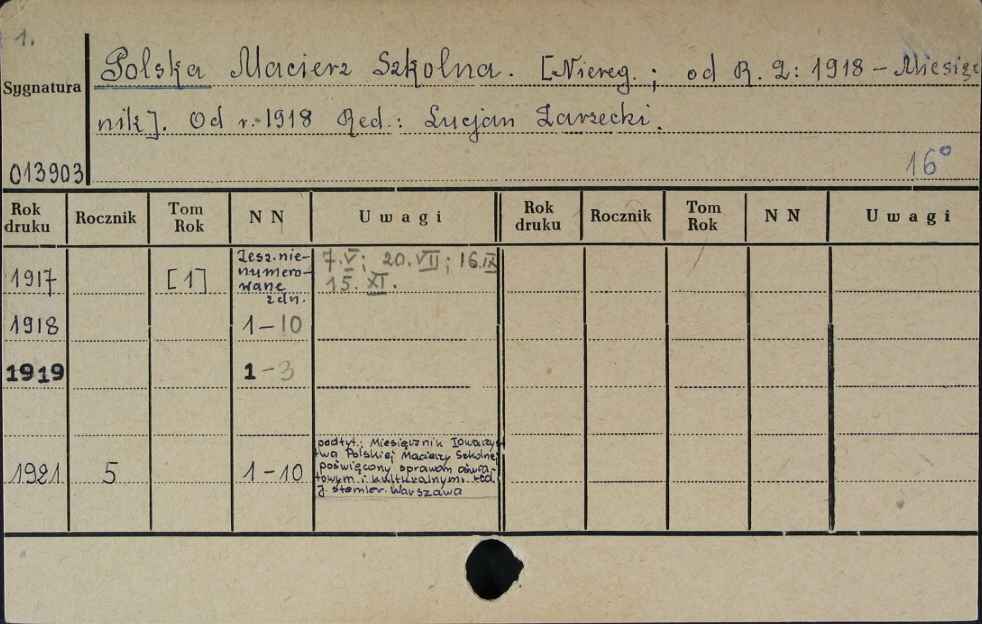 1.
Polska Macierz Szkolna. [Niereg.; od R. 2: 1918 – Miesięcz
Sygnatura
nik]. Od r. 1918 Red.: Lucjan Zarzecki.
013903
16°
Rok druku Rocznik Tom Rok N N Uwagi Rok druku Rocznik Tom Rok N N Uwagi
1917 [1] Zesz. nie- numero- wane zdn. 7.V; 20.VII; 16.IX 15. XI.
1918 1–10
1919 1–3
1921 5 1–10 podtyt.: Miesięcznik Towarzys
twa Polskiej Macierzy Szkolnej
poświęcony sprawom oświa-
towym i kulturalnym. red.
J. Stemler. Warszawa